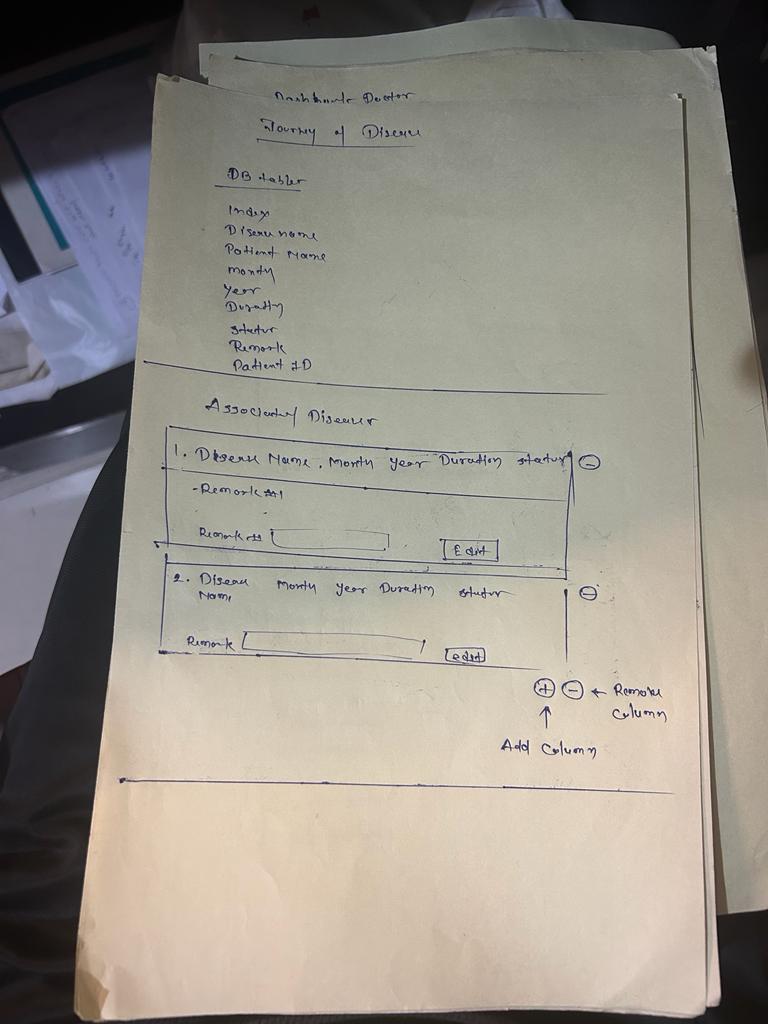 Dashboard Doctor
Journey of Disease
DB tables
Index
Disease name
Patient Name
Month
Year
Duration
Status
Remark
Patient ID
Associated Diseases
1. Disease Name, Month Year Duration status -
-Remark #1
Remark
Edit
2. Disease Name Month Year Duration status -
Remark
edit
+ - ← Remove Column
↑
Add Column